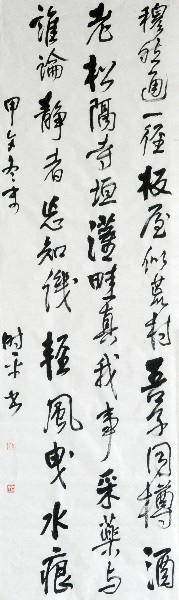 穆然通一径板屋似荒村吾子同樽酒
老松隔寺垣灌畦真我事采药与
谁论静者忘知机轻风曳水痕
甲午冬末
时平书